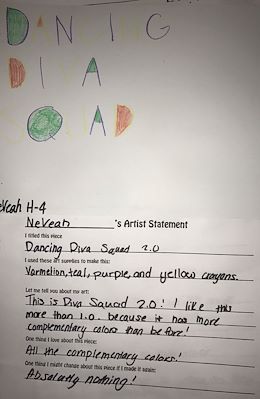 DANCING
DIVA
SQUAD
NeVeah H-4
NeVeah 's Artist Statement
I titled this piece
Dancing Diva Squad 2.0
I used these art supplies to make this:
Vormelion, teal, purple, and yellow crayons.
Let me tell you about my art:
This is Diva Squad 2.0! I like this
more than 1.0. because it has more
complementary colors than before!
One thing I love about this piece:
All the complementary colors!
One thing I might change about this piece if I made it again:
Absolutly nothing!